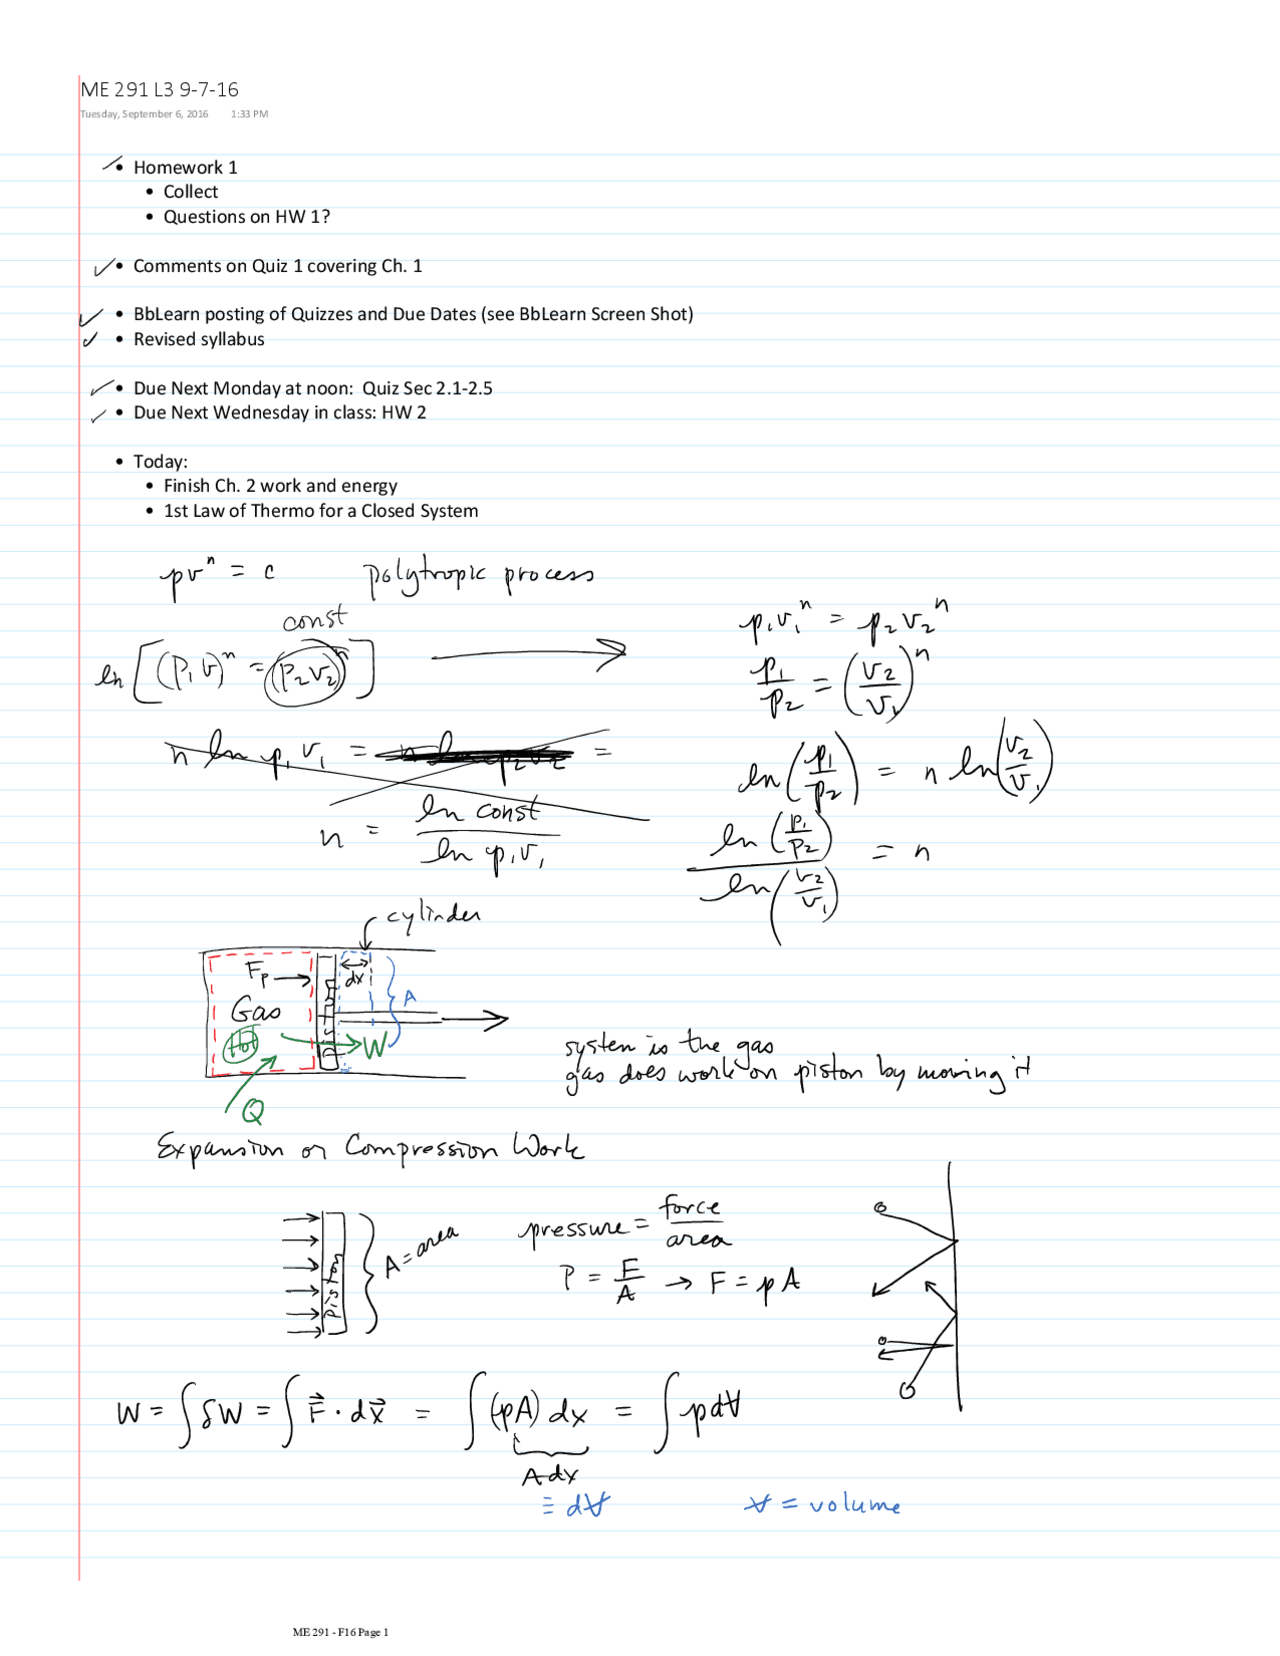 ME 291 L3 9-7-16
Tuesday, September 6, 2016 1:33 PM
• Homework 1
• Collect
• Questions on HW 1?
• Comments on Quiz 1 covering Ch. 1
• BbLearn posting of Quizzes and Due Dates (see BbLearn Screen Shot)
• Revised syllabus
• Due Next Monday at noon: Quiz Sec 2.1-2.5
• Due Next Wednesday in class: HW 2
• Today:
• Finish Ch. 2 work and energy
• 1st Law of Thermo for a Closed System
pvⁿ = c polytropic process
const
ln[(P₁v)ⁿ = (P₂v₂)ⁿ]
n ln p₁v₁ = n ln p₂v₂ =
n = ln const / ln p₁v₁
p₁v₁ⁿ = p₂v₂ⁿ
p₁/p₂ = (v₂/v₁)ⁿ
ln(p₁/p₂) = n ln(v₂/v₁)
ln(p₁/p₂) / ln(v₂/v₁) = n
cylinder
Fp dx
Gas piston A
Hot W
Q
system is the gas
gas does work on piston by moving it
Expansion or Compression Work
piston A = area
pressure = force/area
P = F/A → F = pA
W = ∫δW = ∫F⃗ · dx⃗ = ∫(pA) dx = ∫pd∀
A dx
≡ d∀
∀ = volume
ME 291 - F16 Page 1